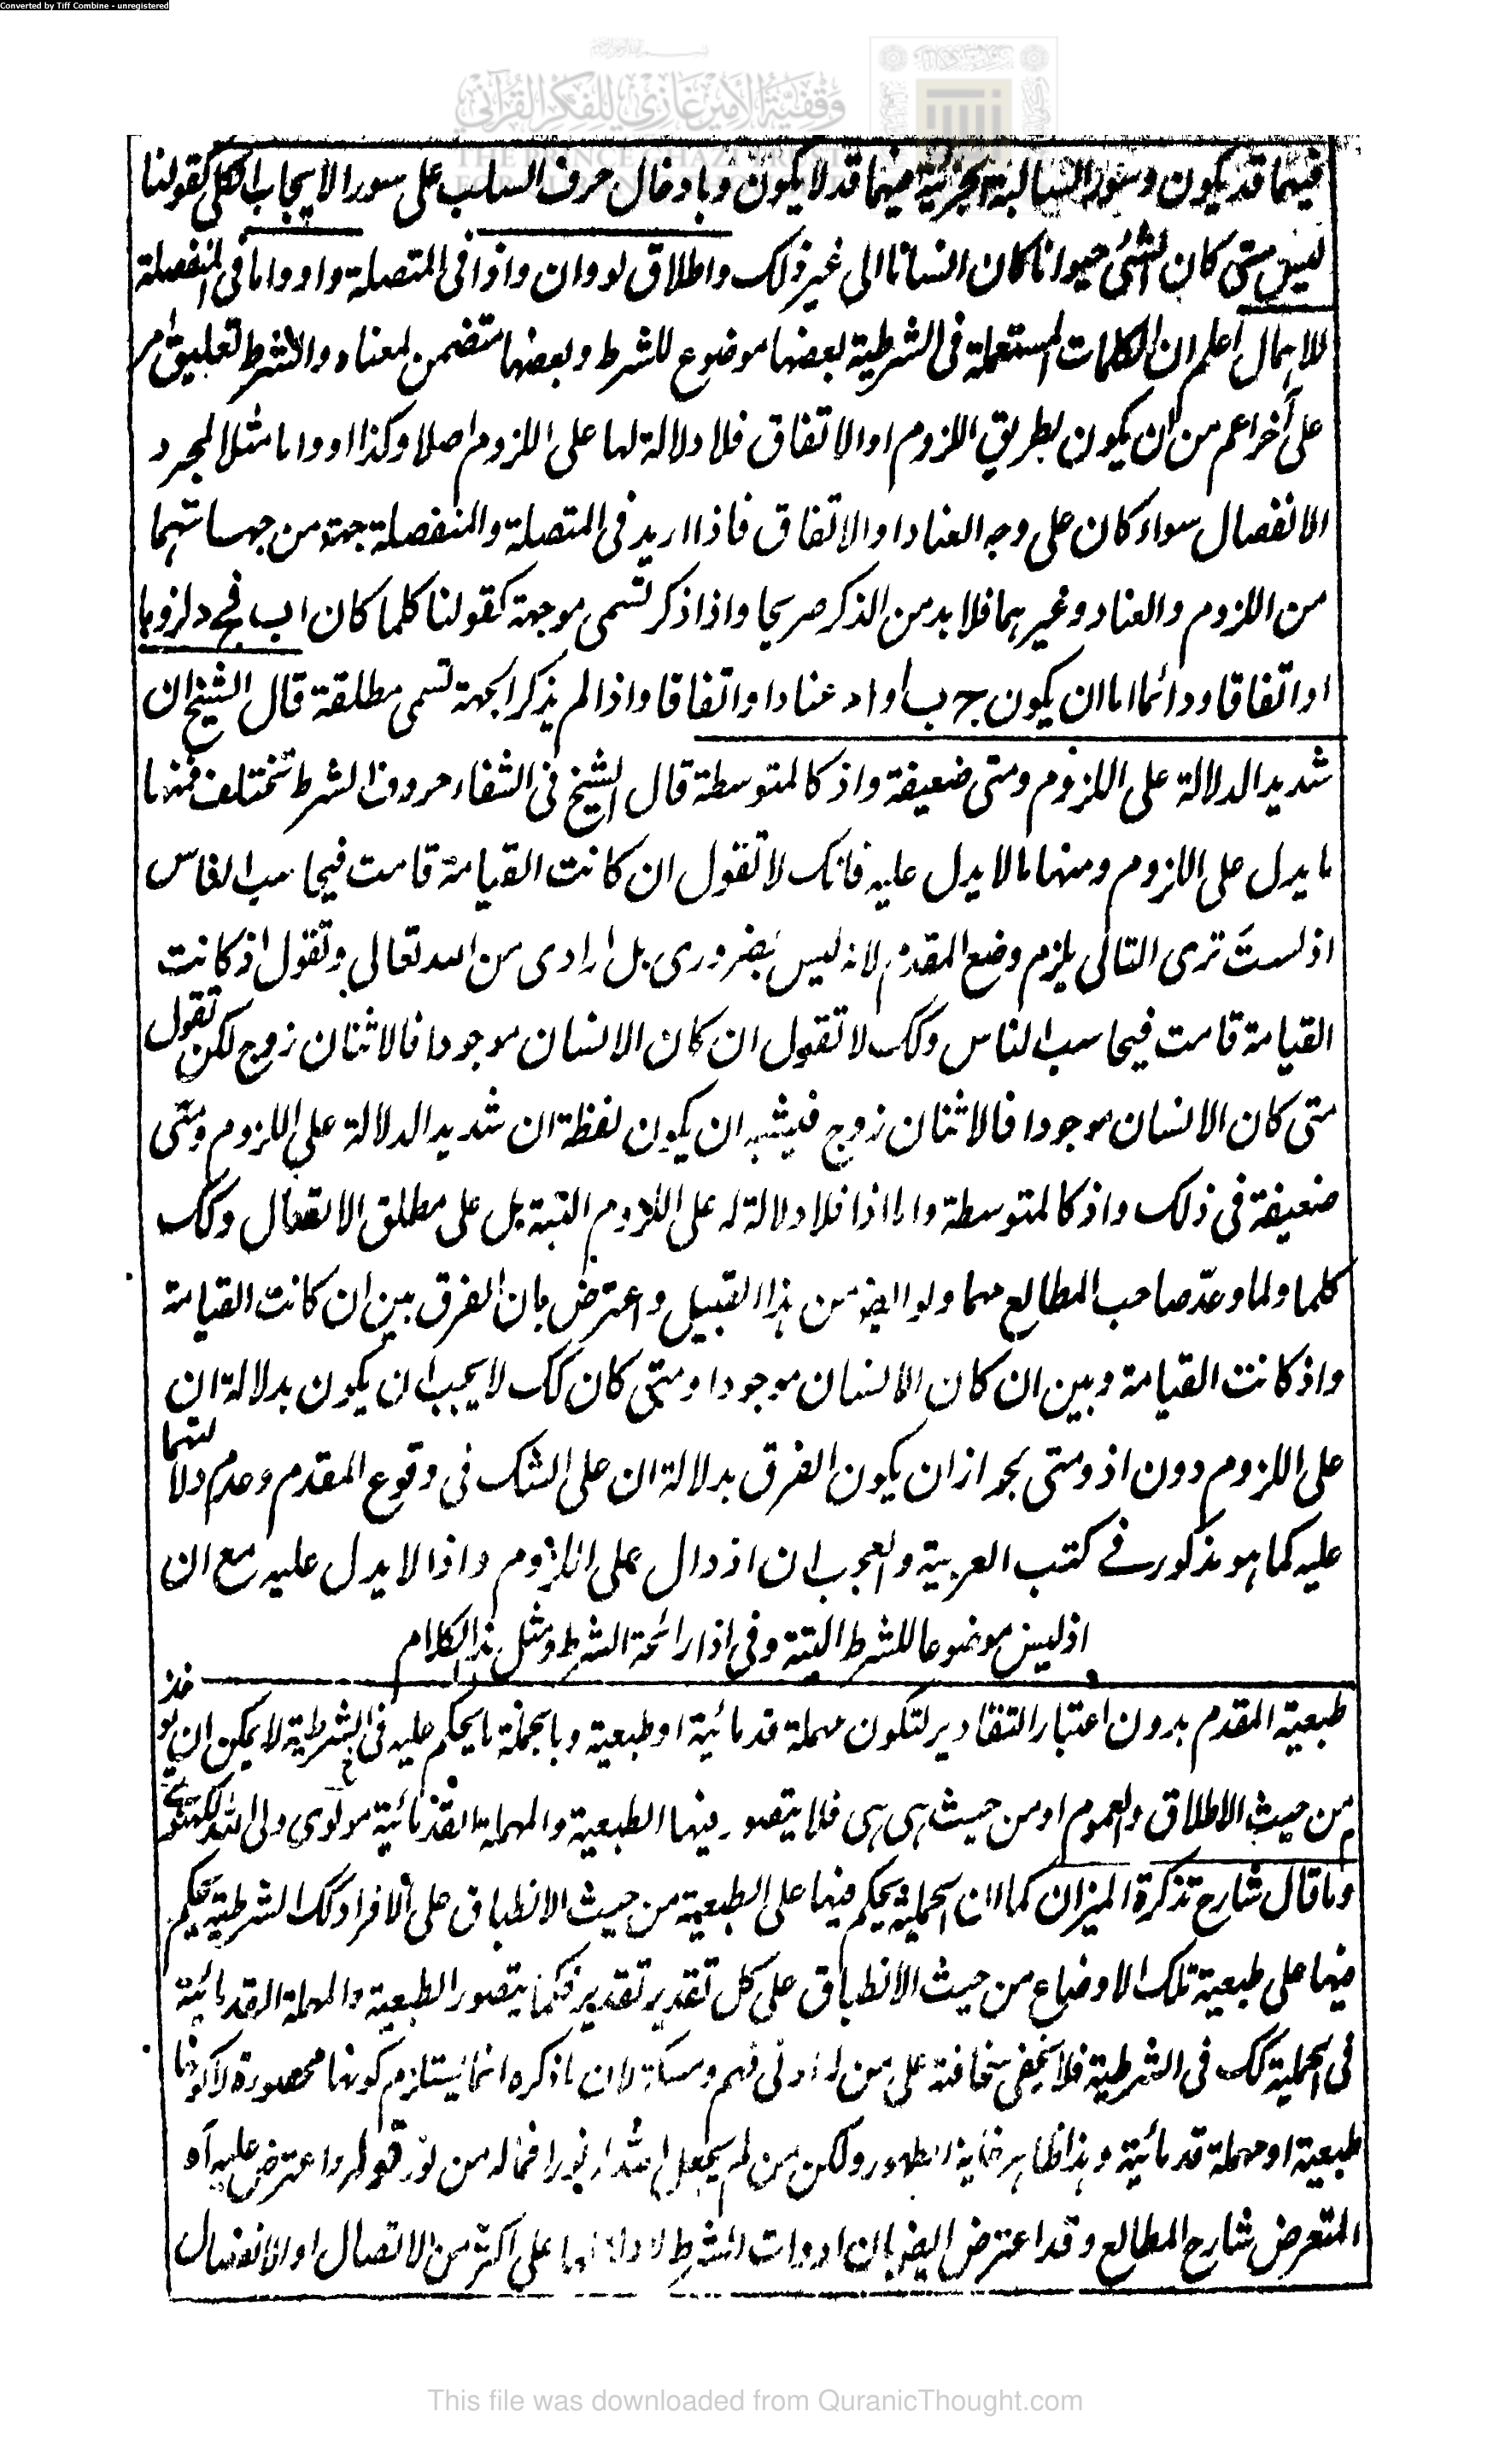 Converted by Tiff Combine - unregistered
وقفية الأمير غازي للفكر القرآني
THE PRINCE GHAZI TRUST
فيهما قد يكون وسور السالبة الجزئية فيهما قد لا يكون وبادخال حرف السلب على سور الايجاب الكلى كقولنا
ليس متى كان الشئ حيوانا كان انسانا الى غير ذلك واطلاق لو وان واذا فى المتصلة واو واما فى المنفصلة
للاهمال اعلم ان الكلمات المستعملة فى الشرطية بعضها موضوع للشرط وبعضها متضمن لمعناه والشرط تعليق امر
على آخر اعم من ان يكون بطريق اللزوم او الاتفاق فلا دلالة لها على اللزوم اصلا وكذا او واما مثلا لمجرد
الانفصال سواء كان على وجه العناد او الاتفاق فاذا اريد فى المتصلة والمنفصلة جهة من جهاتهما
من اللزوم والعناد وغيرهما فلا بد من الذكر صريحا واذا ذكر تسمى موجهة كقولنا كلما كان ا ب فج د لزوما
او اتفاقا ودائما اما ان يكون ج ب او ا د عنادا واتفاقا واذا لم يذكر الجهة تسمى مطلقة قال الشيخ ان
شديد الدلالة على اللزوم ومتى ضعيفة واذ كالمتوسطة قال الشيخ فى الشفاء حروف الشرط تختلف فمنها
ما يدل على اللزوم ومنها ما لا يدل عليه فانك لا تقول ان كانت القيامة قامت فيحاسب الناس
اذ لست ترى التالى يلزم وضع المقدم لانه ليس بضرورى بل ارادى من الله تعالى وتقول اذ كانت
القيامة قامت فيحاسب الناس وكك لا تقول ان كان الانسان موجودا فالاثنان زوج لكن تقول
متى كان الانسان موجودا فالاثنان زوج فيشبه ان يكون لفظة ان شديد الدلالة على اللزوم ومتى
ضعيفة فى ذلك واذ كالمتوسطة واما اذا فلا دلالة له على اللزوم البتة بل على مطلق الاتصال وكك
كلما ولما وعدّ صاحب المطالع مهما ولو ايضا من هذا القبيل واعترض بان الفرق بين ان كانت القيامة
واذ كانت القيامة وبين ان كان الانسان موجودا ومتى كان كك لا يجب ان يكون بدلالة ان
على اللزوم دون اذ ومتى بجواز ان يكون الفرق بدلالة ان على الشك فى وقوع المقدم وعدم دلالتهما
عليه كما هو مذكور فے كتب العربية والعجب ان اذ دال على اللزوم واذا لا يدل عليه مع ان
اذ ليس موضوعا للشرط البتة وفى اذا رائحة الشرط ومثل هذا الكلام
طبعية المقدم بدون اعتبار التقادير لتكون مهملة قدمائية او طبعية وبالجملة ما يحكم عليه فى الشرطية لا يمكن ان يوخذ
من حيث الاطلاق والعموم او من حيث هى هى فلا يتصور فيها الطبعية والمهملة القدمائية مولوى ولى الله لكهنوے
وما قال شارح تذكرة الميزان كما ان الحملية يحكم فيها على الطبعية من حيث الانطباق على الافراد كك الشرطية يحكم
فيها على طبعية تلك الاوضاع من حيث الانطباق على كل تقدير تقدير فكما يتصور الطبعية والمهملة القدمائية
فى الحملية كك فى الشرطية فلا يخفى سخافته على من له ادنى فهم ومسكة لان ما ذكره انما يستلزم كونها محصورة لا كونها
طبعية او مهملة قدمائية وهذا ظاهر غاية الظهور ولكن من لم يجعل الله له نورا فما له من نور قوله واعترض عليه آه
المتعرض شارح المطالع وقد اعترض ايضا بان ادوات الشرط لا دلالة لها على اكثر من الاتصال او الانفصال
This file was downloaded from QuranicThought.com